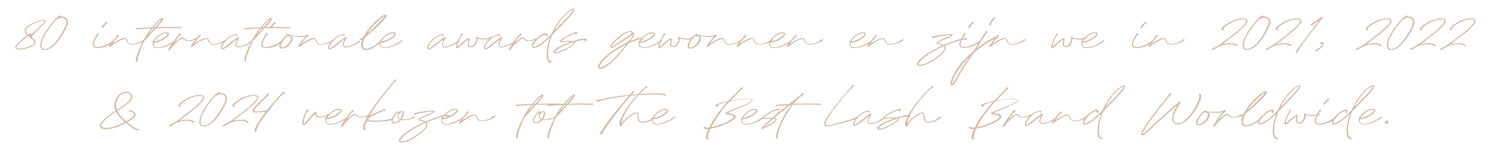 80 internationale awards gewonnen en zijn we in 2021, 2022
& 2024 verkozen tot The Best Lash Brand Worldwide.